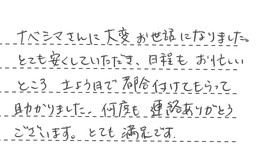 ナベシマさんに大変お世話になりました。
とても安くしていただき、日程もお忙しい
ところ 土よう日で都合付けてもらって
助かりました。何度も連絡ありがとう
ございます。とても満足です